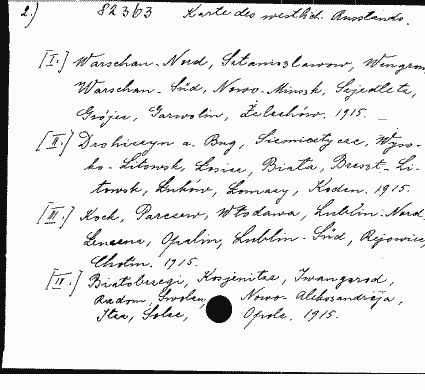 2.) 82363 Karte des westl. Russlands.
[I.] Warschau-Nord, Stanisławow, Wengrow
Warschau-Süd, Nowo-Minsk, Sjedletz,
Grójec, Garwolin, Żelechów. 1915. —
[II.] Drohiczyn a. Bug, Siemiatycze, Wyso-
ko-Litowsk, Łosice, Biała, Brest-Li-
towsk, Łuków, Łomazy, Koden. 1915.
[III.] Kock, Parczew, Włodawa, Lublin-Nord,
Lenczna, Opalin, Lublin-Süd, Rejowiec,
Cholm. 1915.
[IV.] Białobrzegi, Kosjenitze, Iwangorod,
Radom, Nowo-Aleksandrija,
Iłża, Solec, Opole. 1915.